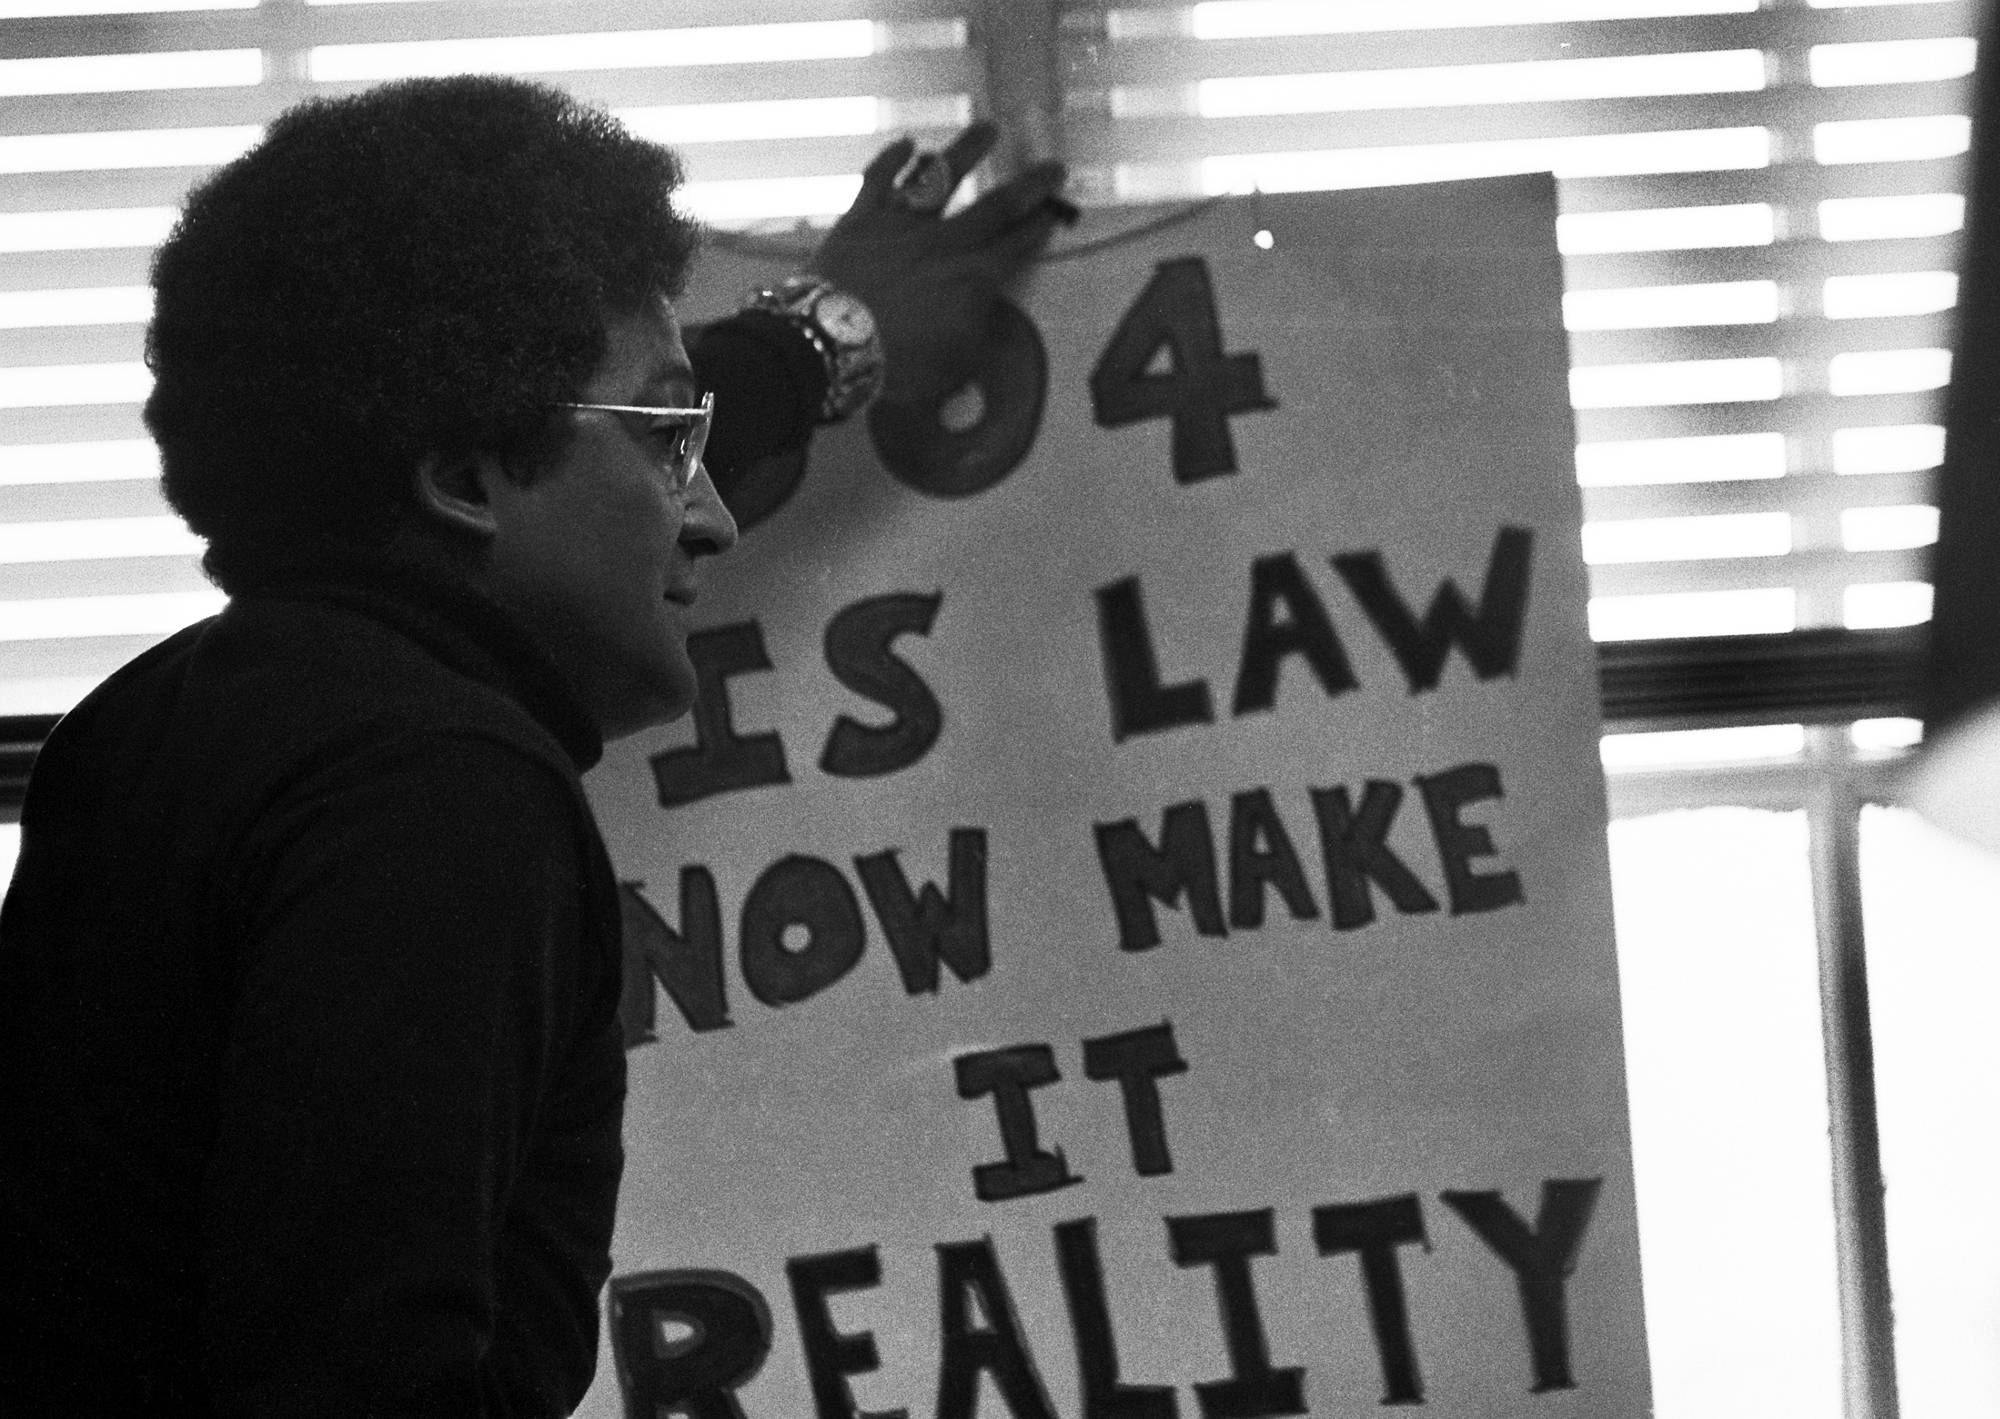 504
IS LAW
NOW MAKE
IT
REALITY